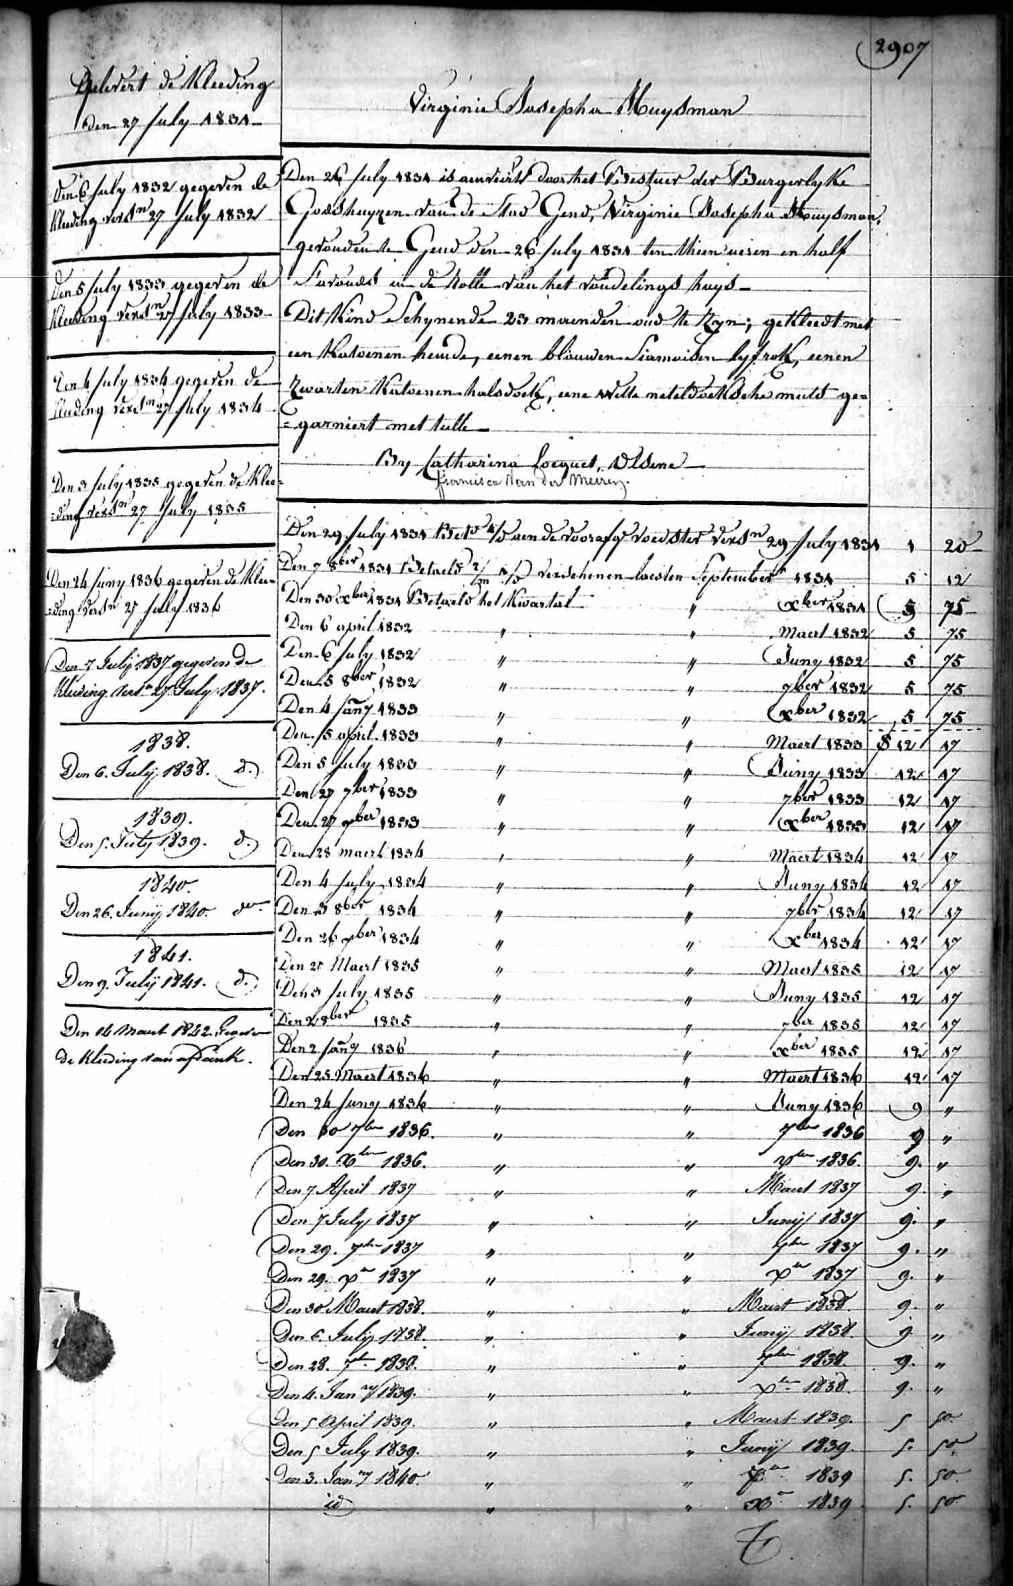 2907
Gelevert de Kleeding
den 27 July 1831
Den 6 July 1832 gegeven de
Kleeding versn 27 July 1832
Den 5 July 1833 gegeven de
Kleeding versn 27 July 1833
Den 4 July 1834 gegeven de
Kleeding versn 27 July 1834
Den 3 July 1835 gegeven de Klee=
=ding versn 27 July 1835
Den 24 Juny 1836 gegeven de Klee=
=ding versn 27 July 1836
Den 7 Julij 1837 gegeven de
Kleeding versn 27 July 1837.
1838.
Den 6. Julij 1838. d.
1839.
Den 5. July 1839. d.
1840.
Den 26. Junij 1840. do
1841.
Den 9. Julij 1841. d.
Den 14 Maart 1842. Gegeven
de Kleeding van
Virginie Josepha Muysman
Den 26 July 1831 is aenveird door het Bestuer der Burgerlyke
Godshuyzen van de Stad Gend, Virginie Josepha Muysman,
gevonden te Gend den 26 July 1831 ten thien uren en half
s'avonds in de Rolle van het vondelings huys
Dit Kind schynende 23 maenden oud te zyn; gekleedt met
een Katoenen hemde, eenen blauwen Siamoisen lyfrok, eenen
zwarten Katoenen halsdoek, eene witte neteldoeksche muts ge=
=garniert met tulle
By Catharina Locquet, Oldene
Francisca Van der Meeren
Den 29 July 1831 Bet aen de voorsz voedster versn 29 July 1831 1 20
Den 7 8ber 1831 Betaelt verschenen laesten September 1831 5 12
Den 30 Xber 1831 Betaeld het Kwartael " Xber 1831 5 75
Den 6 april 1832 " " Maert 1832 5 75
Den 6 July 1832 " " Juny 1832 5 75
Den 5 8ber 1832 " " 7ber 1832 5 75
Den 4 Jany 1833 " " Xber 1832 5 75
Den 5 april 1833 " " Maert 1833 12 17
Den 5 July 1833 " " Juny 1833 12 17
Den 27 7ber 1833 " " 7ber 1833 12 17
Den 27 Xber 1833 " " Xber 1833 12 17
Den 28 maert 1834 " " Maert 1834 12 17
Den 4 July 1834 " " Juny 1834 12 17
Den 3 8ber 1834 " " 7ber 1834 12 17
Den 26 Xber 1834 " " Xber 1834 12 17
Den 27 Maert 1835 " " Maert 1835 12 17
Den 3 July 1835 " " Juny 1835 12 17
Den 2 8ber 1835 " " 7ber 1835 12 17
Den 2 Jany 1836 " " Xber 1835 12 17
Den 25 Maert 1836 " " Maert 1836 12 17
Den 24 Juny 1836 " " Juny 1836 9 "
Den 30 7ber 1836. " " 7ber 1836 9 "
Den 30. Xber 1836. " " Xber 1836. 9. "
Den 7 April 1837 " " Maert 1837 9. "
Den 7 July 1837 " " Junij 1837 9. "
Den 29. 7ber 1837 " " 7ber 1837 9. "
Den 29. Xber 1837 " " Xber 1837 9. "
Den 30 Maert 1838. " " Maert 1838 9. "
Den 6. July 1838. " " Junij 1838 9 "
Den 28. 7ber 1838. " " 7ber 1838 9. "
Den 4. Jany 1839. " " Xber 1838. 9. "
Den 5 April 1839. " " Maert 1839. 5 50
Den 5 July 1839. " " Junij 1839. 5. 50
Den 3. Jany 1840. " " 7ber 1839 5. 50
id " " Xber 1839 5. 50